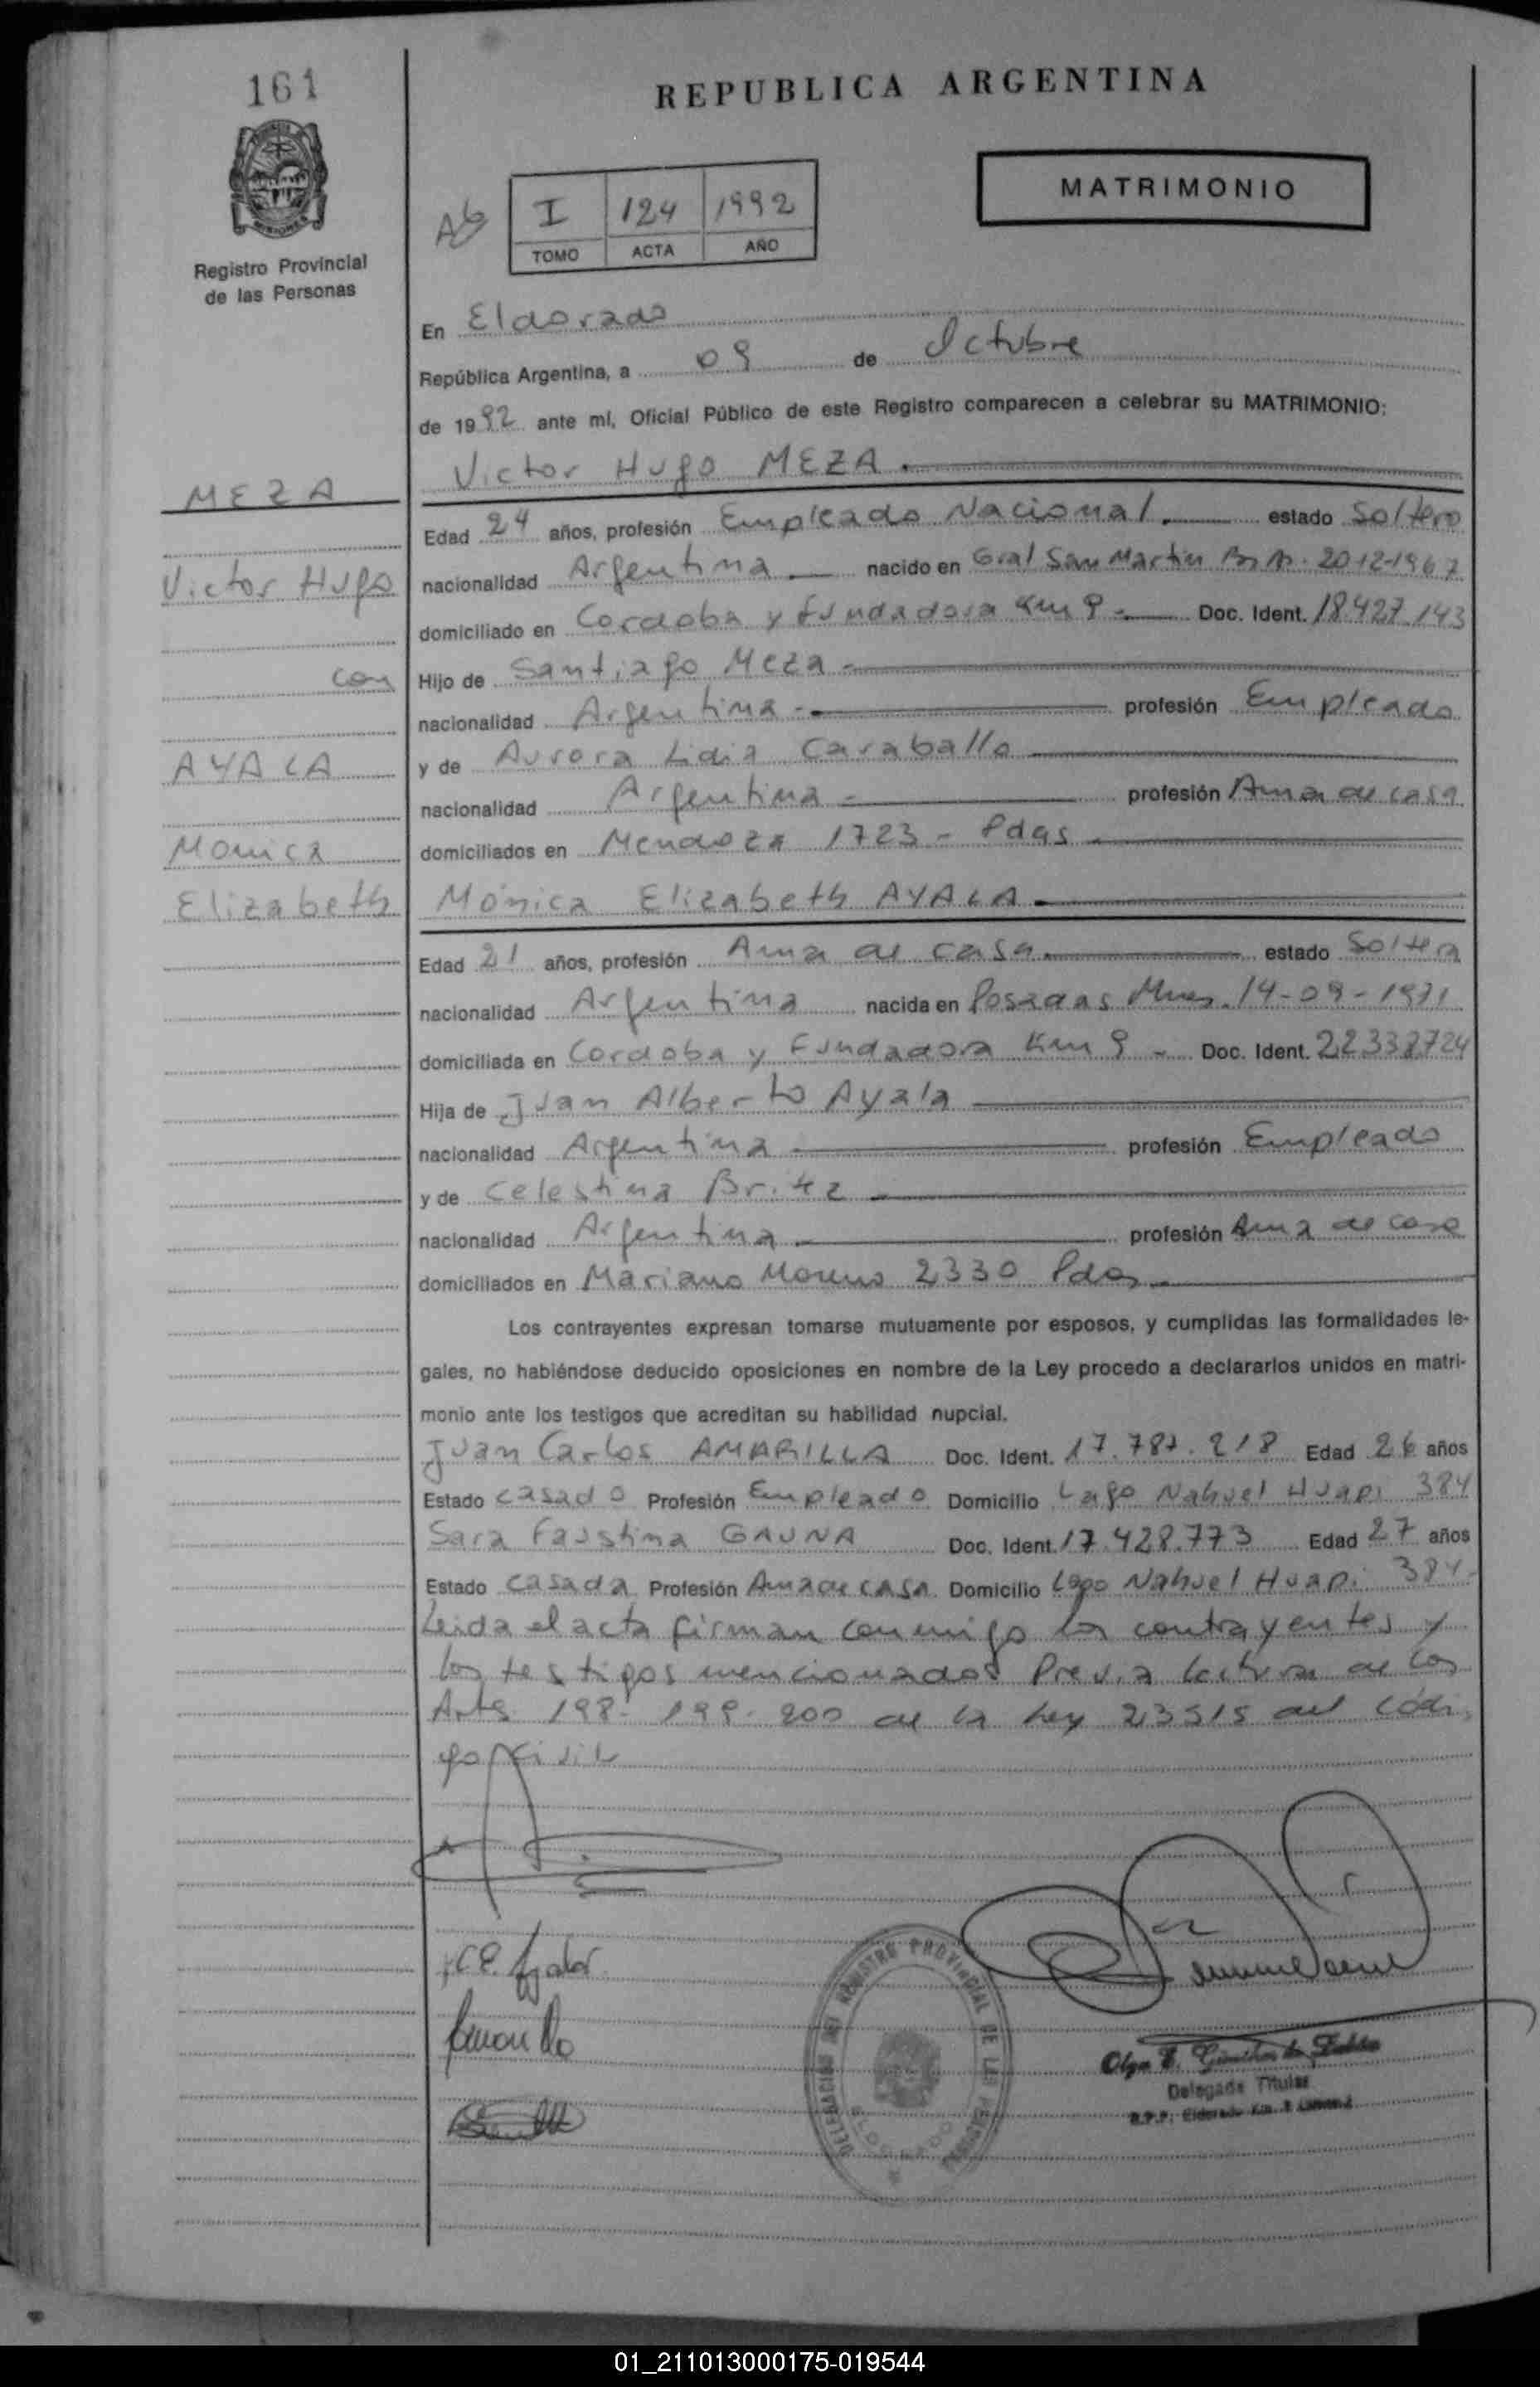 161
REPUBLICA ARGENTINA
MATRIMONIO
I 124 1992
TOMO ACTA AÑO
Registro Provincial
de las Personas
En Eldorado
República Argentina, a 09 de Octubre
de 1992 ante mí, Oficial Público de este Registro comparecen a celebrar su MATRIMONIO:
Victor Hugo MEZA
MEZA
Edad 24 años, profesión Empleado Nacional. estado Soltero
Victor Hugo
nacionalidad Argentina nacido en Gral San Martin Bs As. 20-12-1967
domiciliado en Cordoba y Fundadora Km 9 - Doc. Ident. 18.427.143
con
Hijo de Santiago Meza -
nacionalidad Argentina - profesión Empleado
AYALA
y de Aurora Lidia Caraballo
nacionalidad Argentina - profesión Ama de casa
Monica
domiciliados en Mendoza 1723 - Pdas
Elizabeth
Mónica Elizabeth AYALA
Edad 21 años, profesión Ama de casa estado Soltera
nacionalidad Argentina nacida en Posadas Mnes. 14-09-1971
domiciliada en Cordoba y Fundadora Km 9 - Doc. Ident.
Hija de Juan Alberto Ayala
nacionalidad Argentina profesión Empleado
y de Celestina Britz
nacionalidad Argentina profesión Ama de casa
domiciliados en Mariano Moreno 2330 Pdas
Los contrayentes expresan tomarse mutuamente por esposos, y cumplidas las formalidades le-
gales, no habiéndose deducido oposiciones en nombre de la Ley procedo a declararlos unidos en matri-
monio ante los testigos que acreditan su habilidad nupcial.
Juan Carlos AMARILLA Doc. Ident. 17.787.218 Edad 26 años
Estado casado Profesión Empleado Domicilio Lago Nahuel Huapi 384
Sara Faustina GAUNA Doc. Ident. 17.428.773 Edad 27 años
Estado casada Profesión Ama de casa Domicilio Lago Nahuel Huapi 384-
Leida el acta firman conmigo los contrayentes y
los testigos mencionados Previa lectura de los
Arts 198- 199- 200 de la Ley 23515 del Códi
go Civil
DELEGACION DEL REGISTRO PROVINCIAL DE LAS PERSONAS
ELDORADO
Delegada Titular
01_211013000175-019544